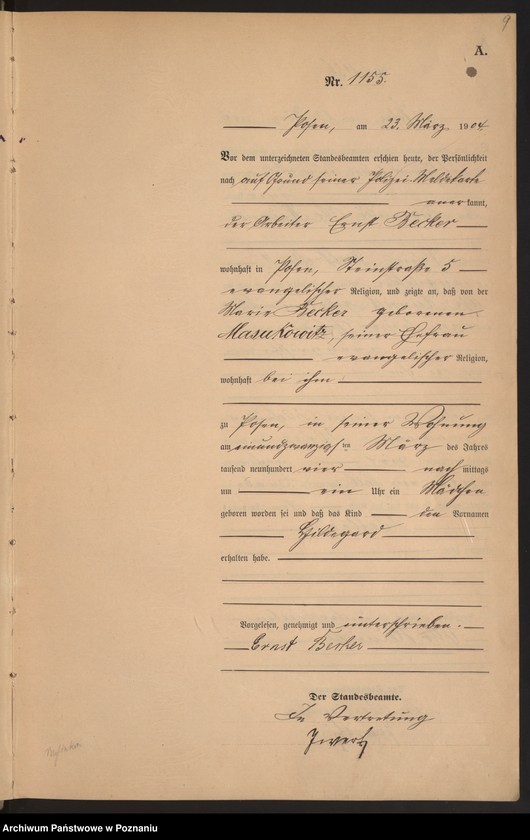 9
A.
Nr. 1155.
Posen, am 23. März 1904
Vor dem unterzeichneten Standesbeamten erschien heute, der Persönlichkeit
nach auf Grund seiner Polizei-Meldekarte
anerkannt,
der Arbeiter Ernst Becker
wohnhaft in Posen, Steinstraße 5
evangelischer Religion, und zeigte an, daß von der
Marie Becker geborenen
Masukowitz, seiner Ehefrau
evangelischer Religion,
wohnhaft bei ihm
zu Posen, in seiner Wohnung
am einundzwanzigsten März des Jahres
tausend neunhundert vier nach mittags
um ein Uhr ein Mädchen
geboren worden sei und daß das Kind den Vornamen
Hildegard
erhalten habe.
Vorgelesen, genehmigt und unterschrieben.
Ernst Becker
Der Standesbeamte.
In Vertretung
Archiwum Państwowe w Poznaniu